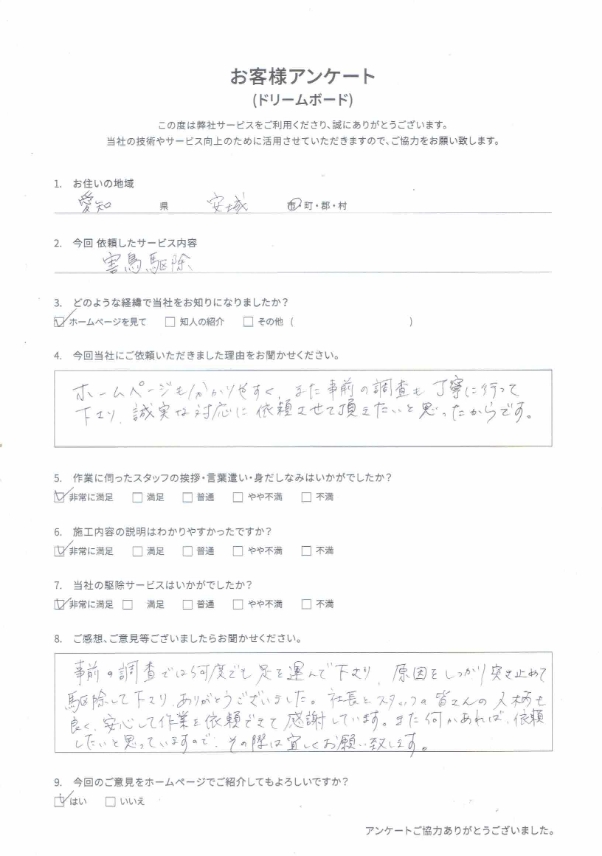 お客様アンケート
(ドリームボード)
この度は弊社サービスをご利用くださり、誠にありがとうございます。
当社の技術やサービス向上のために活用させていただきますので、ご協力をお願い致します。
1. お住いの地域
愛知 県 安城 市・町・郡・村
2. 今回 依頼したサービス内容
害鳥駆除
3. どのような経緯で当社をお知りになりましたか?
☑ホームページを見て □知人の紹介 □その他 ( )
4. 今回当社にご依頼いただきました理由をお聞かせください。
ホームページも分かりやすく、また事前の調査も丁寧に行って
下さり、誠実な対応に依頼させて頂きたいと思ったからです。
5. 作業に伺ったスタッフの挨拶・言葉遣い・身だしなみはいかがでしたか?
☑非常に満足 □満足 □普通 □やや不満 □不満
6. 施工内容の説明はわかりやすかったですか?
☑非常に満足 □満足 □普通 □やや不満 □不満
7. 当社の駆除サービスはいかがでしたか?
☑非常に満足 □満足 □普通 □やや不満 □不満
8. ご感想、ご意見等ございましたらお聞かせください。
事前の調査では何度でも足を運んで下さり、原因をしっかり突き止めて
駆除して下さり、ありがとうございました。社長とスタッフの皆さんの人柄も
良く、安心して作業を依頼できて感謝しています。また何かあれば、依頼
したいと思っていますので、その際は宜しくお願い致します。
9. 今回のご意見をホームページでご紹介してもよろしいですか?
☑はい □いいえ
アンケートご協力ありがとうございました。